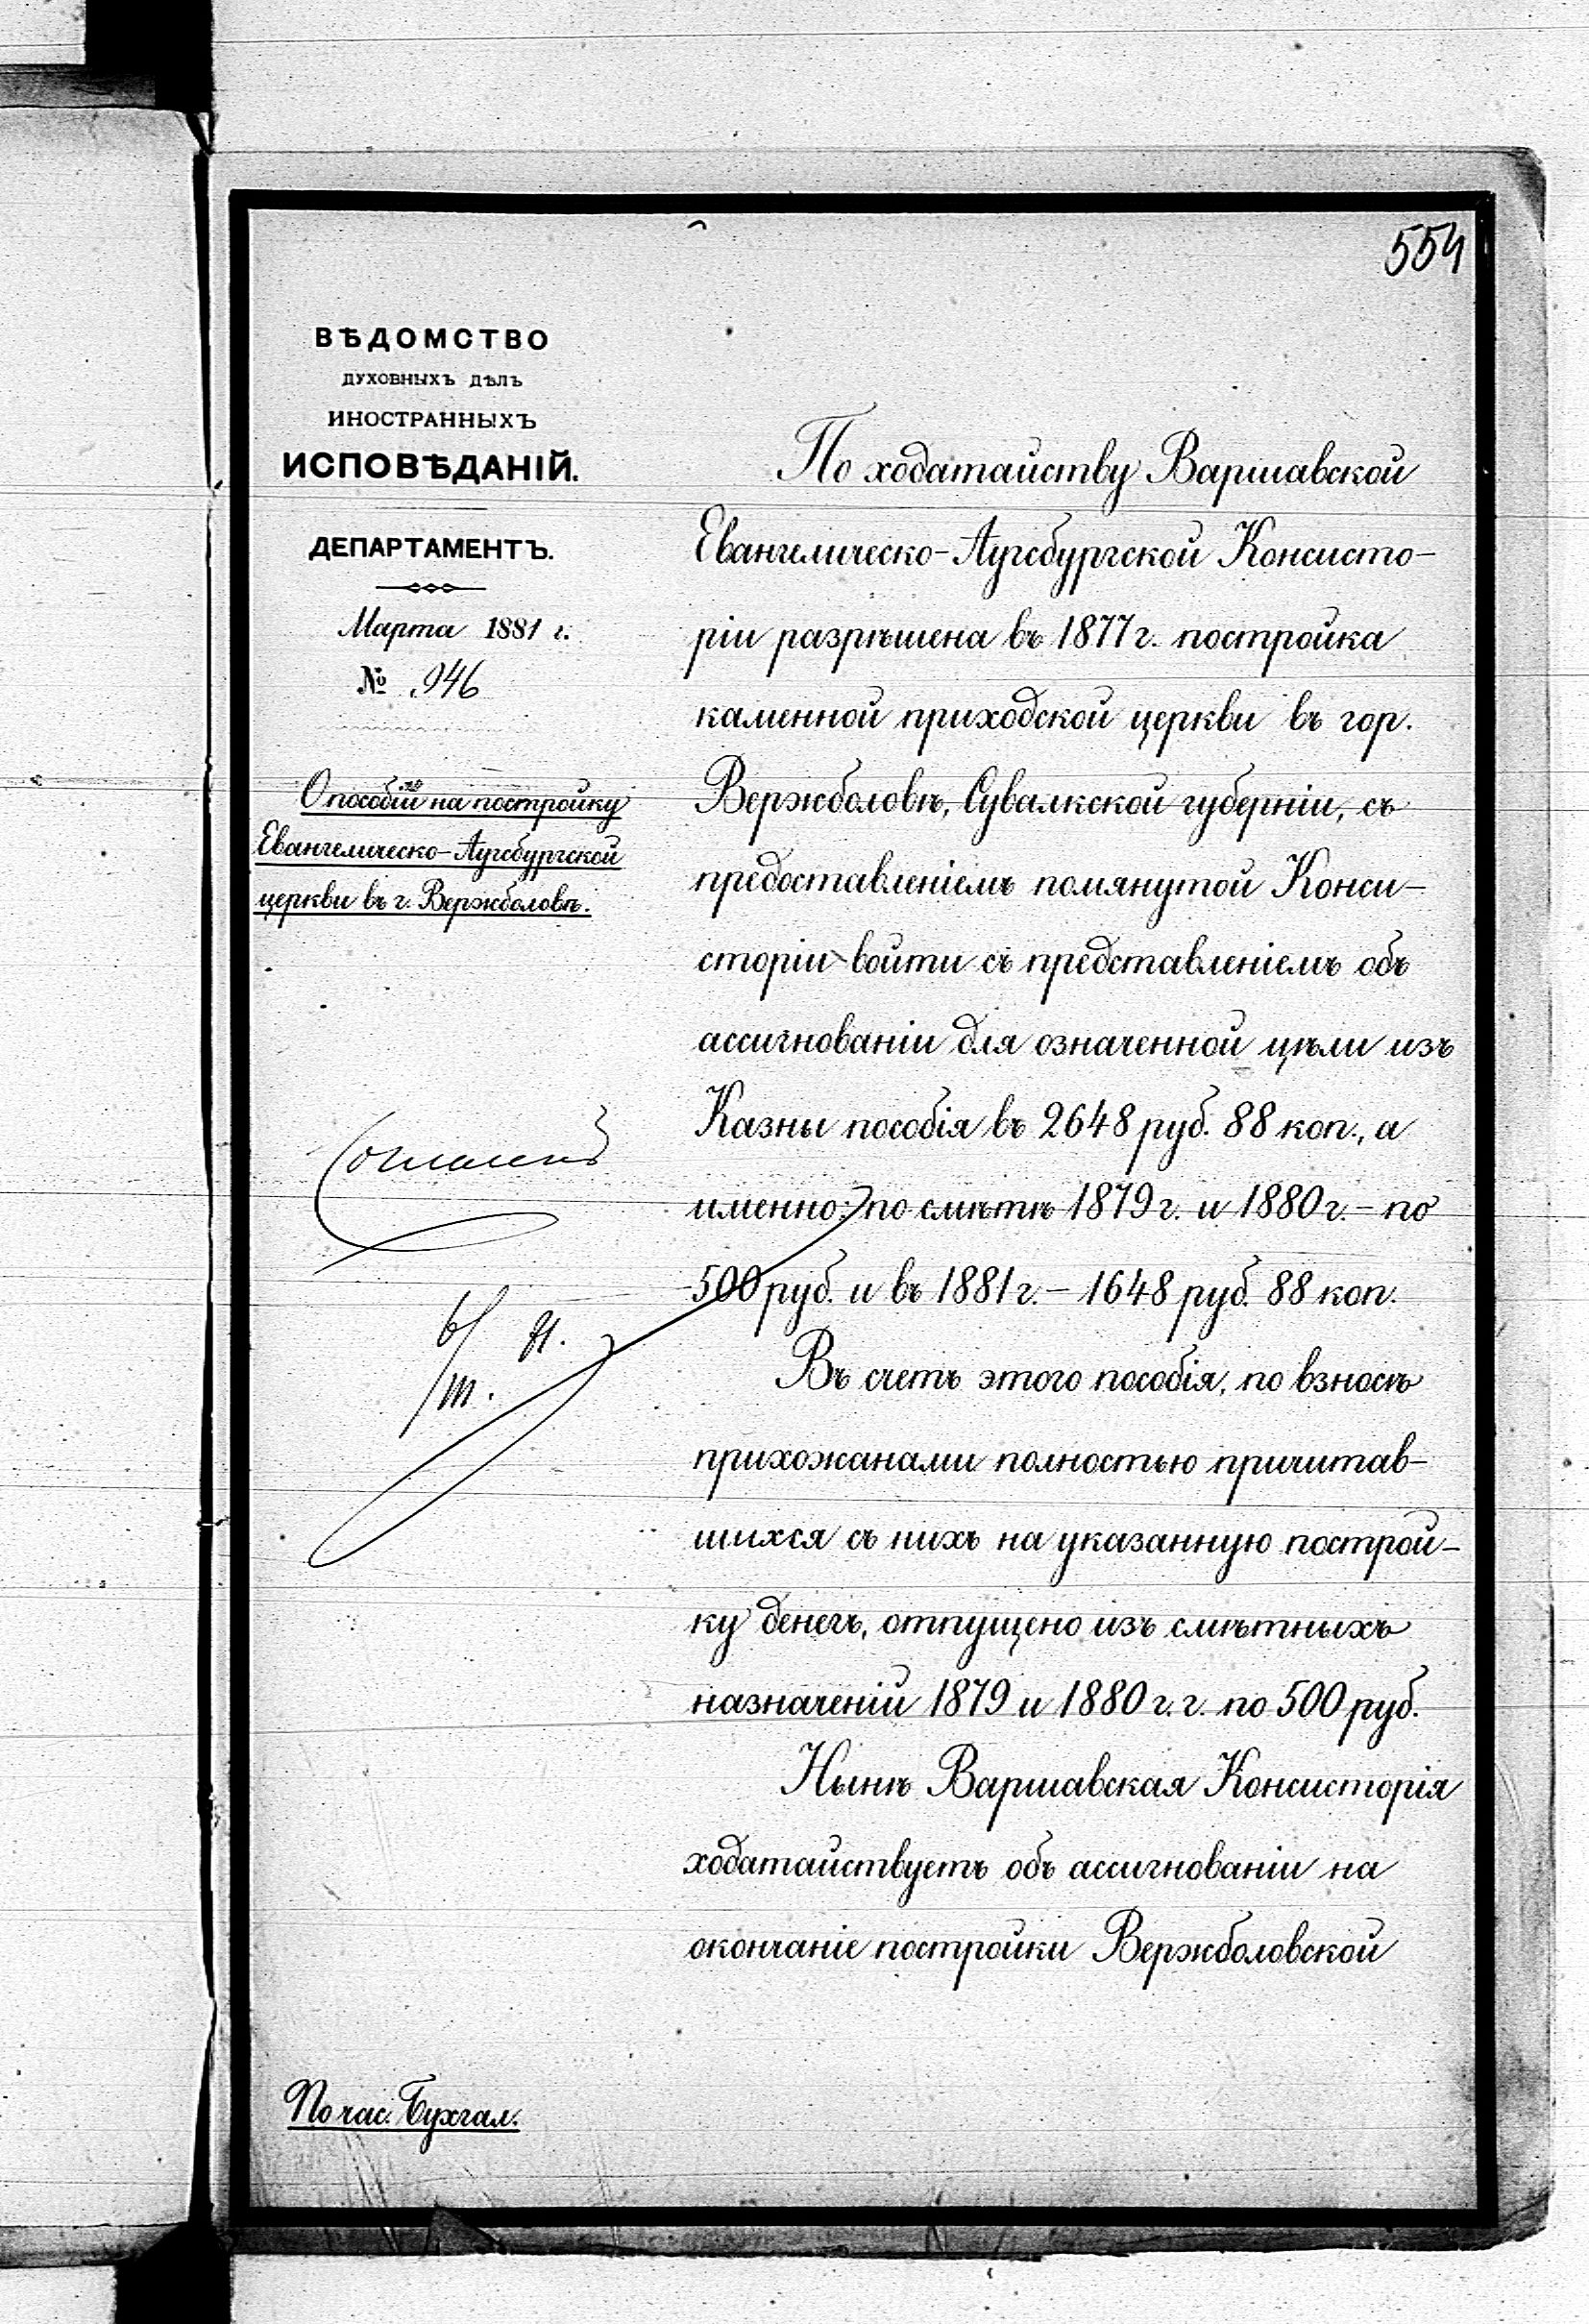 554
ВѢДОМСТВО
ДУХОВНЫХЪ ДѢЛЪ
ИНОСТРАННЫХЪ
ИСПОВѢДАНІЙ.
ДЕПАРТАМЕНТЪ.
Марта 1881 г.
№ 946
О пособіи на постройку
Евангелическо-Аугсбургской
церкви въ г. Вержболовѣ.
Согласенъ
6/III.
По час. Бухгал.
По ходатайству Варшавской
Евангелическо-Аугсбургской Консисто-
ріи разрѣшена въ 1877 г. постройка
каменной приходской церкви въ гор.
Вержболовѣ, Сувалкской губерніи, съ
предоставленіемъ помянутой Конси-
сторіи войти съ представленіемъ объ
ассигнованіи для означенной цѣли изъ
Казны пособія въ 2648 руб. 88 коп., а
именно: по смѣтѣ 1879 г. и 1880 г. – по
500 руб. и въ 1881 г. – 1648 руб. 88 коп.
Въ счетъ этого пособія, по взносѣ
прихожанами полностью причитав-
шихся съ нихъ на указанную построй-
ку денегъ, отпущено изъ смѣтныхъ
назначеній 1879 и 1880 г.г. по 500 руб.
Нынѣ Варшавская Консисторія
ходатайствуетъ объ ассигнованіи на
окончаніе постройки Вержболовской